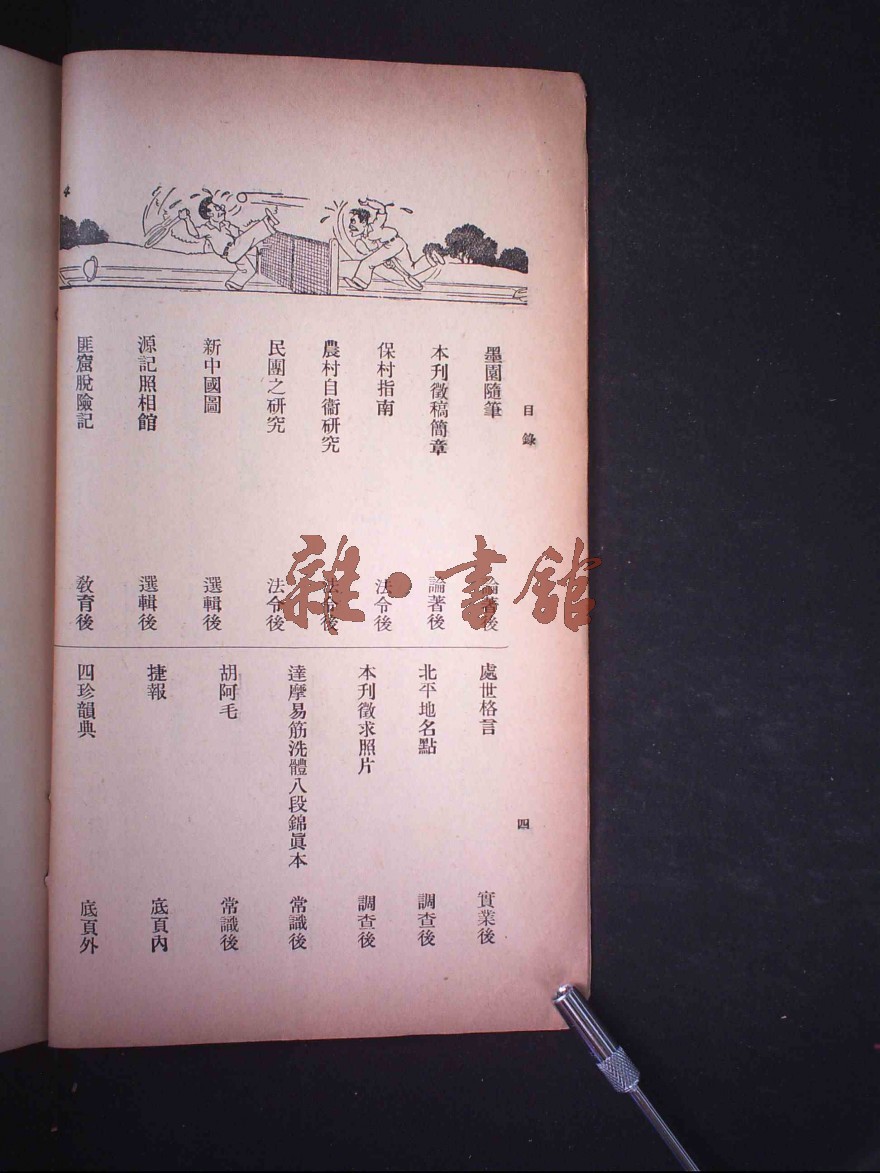 目錄
四
墨園隨筆 論著後
本刋徵稿簡章 論著後
保村指南 法令後
農村自衞研究 法令後
民團之研究 法令後
新中國圖 選輯後
源記照相館 選輯後
匪窟脫險記 敎育後
處世格言 實業後
北平地名點 調查後
本刋徵求照片 調查後
達摩易筋洗體八段錦眞本 常識後
胡阿毛 常識後
捷報 底頁內
四珍韻典 底頁外
4
雜·書館